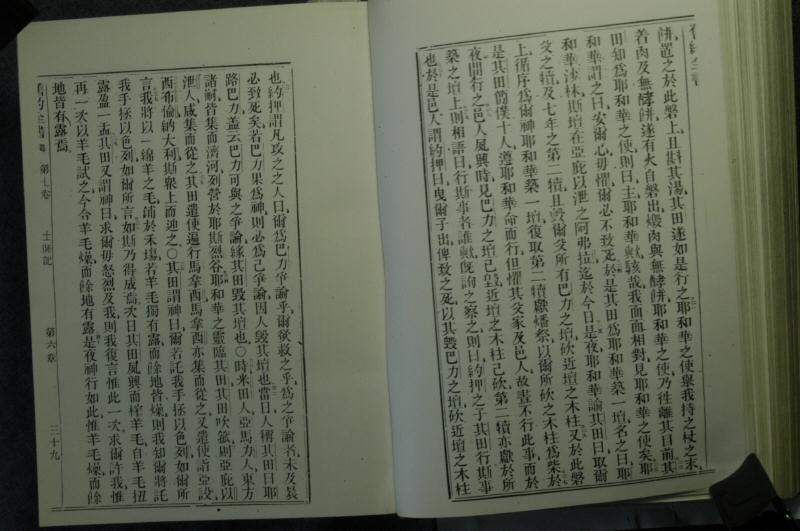 舊約全書
餅置之於此磐上且斟其湯其田遂如是行之耶和華之使舉我持之杖之末
着肉及無酵餅遂有火自磐出燬肉與無酵餅耶和華之使乃徃離其目前其
田知爲耶和華之使則曰主耶和華歟該哉我面面相對見耶和華之使矣耶
和華謂之曰安爾心毋懼爾必不致死於是其田爲耶和華築一壇名之曰耶
和華沙林斯壇在亞庇以泄之阿弗拉迄於今日是夜耶和華諭其田曰取爾
父之犢及七年之第二犢且毀爾父所有巴力之壇砍近壇之木柱又於此磐
上循序爲爾神耶和華築一壇復取第二犢獻燔祭以爾所砍之木柱爲柴於
是其田簡僕十人遵耶和華命而行但懼其父家及邑人故晝不行此事而於
夜間行之邑人夙興時見巴力之壇已毀近壇之木柱已砍第二犢亦獻於所
築之壇上則相語曰行斯事者誰歟旣詢之察之則曰約押之子其田行斯事
也於是邑人謂約押曰曳爾子出俾致之死以其毀巴力之壇砍近壇之木柱
也約押謂凡攻之之人曰爾爲巴力爭論乎爾欲救之乎爲之爭論者未及晨
必致死矣若巴力果爲神則必爲己爭論因人毀其壇也當日人稱其田曰耶
路巴力盖云巴力可與之爭論緣其田毀其壇也○時米田人亞馬力人東方
諸嗣皆集而濟河列營於耶斯烈谷耶和華之靈臨其田其田吹號則亞庇以
泄人咸集而從之其田遣使遍行馬拿西馬拿西亦集而從之又遣使詣亞設
西布倫納大利斯衆上而迎之○其田謂神曰爾若託我手拯以色列如爾所
言我將以一綿羊之毛鋪於禾塲若羊毛獨有露而餘地皆燥則我知爾將託
我手拯以色列如爾所言如斯乃得成焉次日其田夙興而榨羊毛自羊毛扭
露盈一盂其田又謂神曰求爾毋怒烈及我則我復言惟此一次求爾許我惟
再一次以羊毛試之今令羊毛燥而餘地有露是夜神行如此惟羊毛燥而餘
地皆有露焉
舊約全書 第七卷 士師記 第六章 三十九